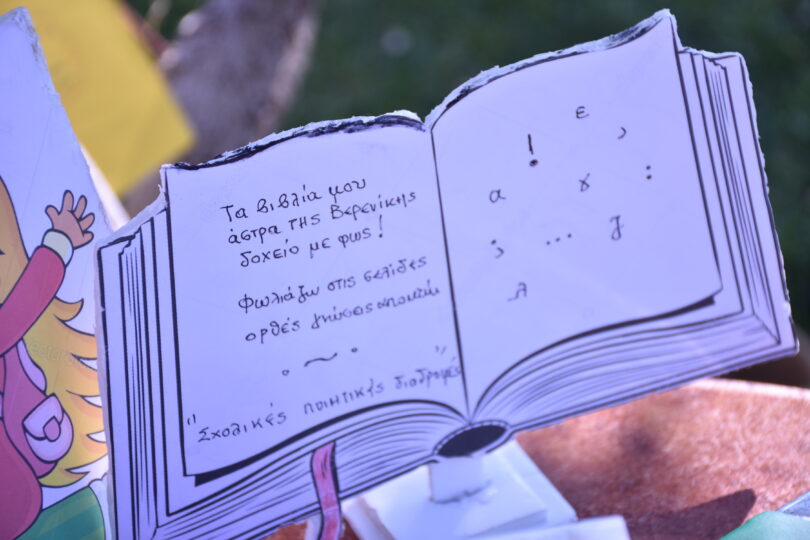 Τα βιβλία μου
άστρα της Βερενίκης
δοχείο με φως!
Φωλιάζω στις σελίδες
ορθές γνώσεις αποκτών
. ~ .
"Σχολικές ποιητικές διαδρομές"
ε
! ,
α γ :
; ... g
λ